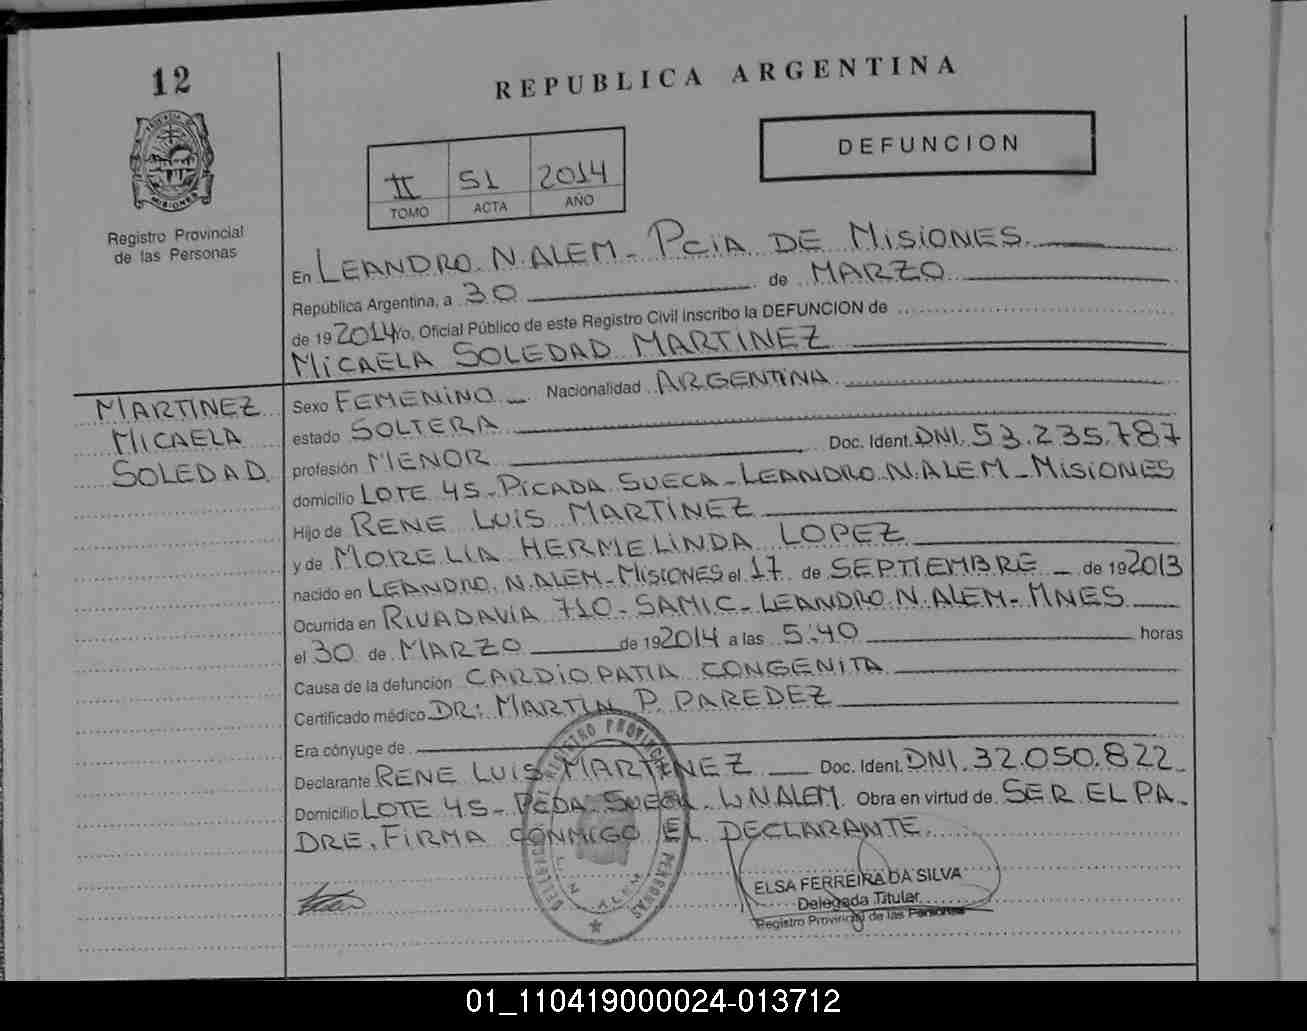 12
REPUBLICA ARGENTINA
PROVINCIA DE
MISIONES
Registro Provincial
de las Personas
II 51 2014
TOMO ACTA AÑO
DEFUNCION
En LEANDRO. N. ALEM - PCIA DE MISIONES.
República Argentina, a 30 de MARZO
de 19 2014 Yo, Oficial Público de este Registro Civil inscribo la DEFUNCION de
MICAELA SOLEDAD MARTINEZ
MARTINEZ
MICAELA
SOLEDAD
Sexo FEMENINO Nacionalidad ARGENTINA
estado SOLTERA
profesión MENOR Doc. Ident. DNI. 53.235.787
domicilio LOTE 45 - PICADA SUECA - LEANDRO. N. ALEM - MISIONES
Hijo de RENE LUIS MARTINEZ
y de MORELIA HERMELINDA LOPEZ
nacido en LEANDRO. N. ALEM - MISIONES el 17 de SEPTIEMBRE de 19 2013
Ocurrida en RIVADAVIA 710 - SAMIC - LEANDRO. N. ALEM - MNES
el 30 de MARZO de 19 2014 a las 5:40 horas
Causa de la defunción CARDIOPATIA CONGENITA
Certificado médico DR: MARTIN P. PAREDEZ
Era cónyuge de
Declarante RENE LUIS MARTINEZ Doc. Ident. DNI. 32.050.822
Domicilio LOTE 45 - PCDA SUECA - LNALEM. Obra en virtud de SER EL PA-
DRE. FIRMA CONMIGO EL DECLARANTE.
ELSA FERREIRA DA SILVA
Delegada Titular
Registro Provincial de las Personas
01_110419000024-013712